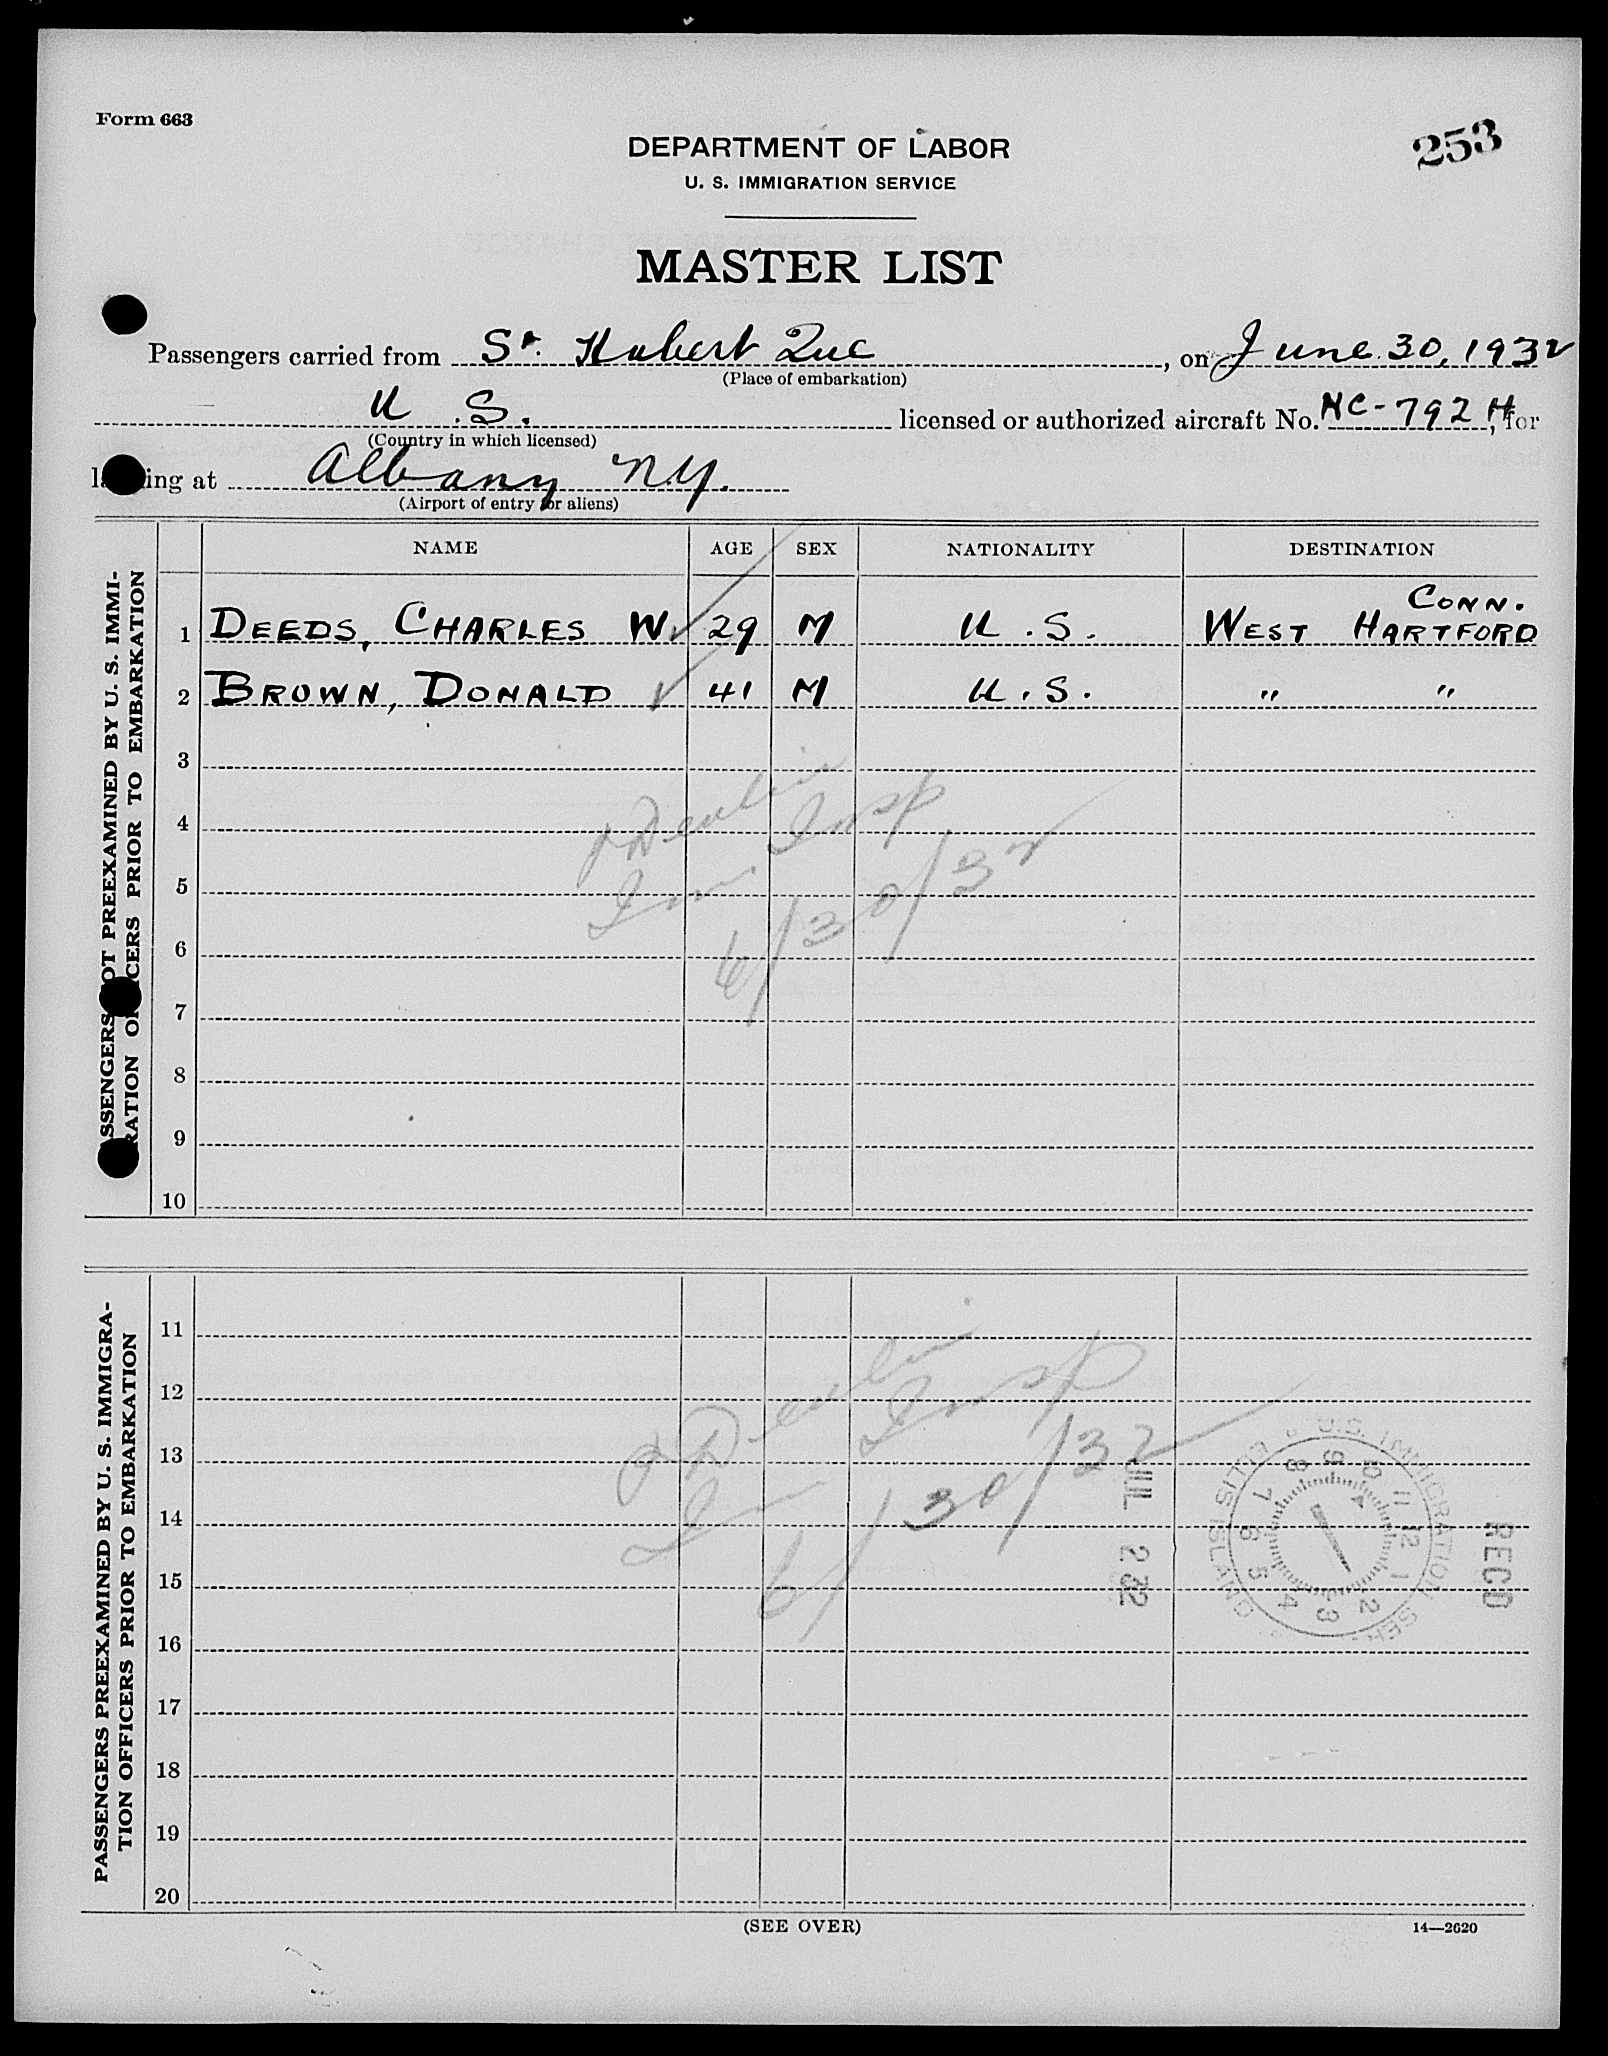 Form 663
253
DEPARTMENT OF LABOR
U. S. IMMIGRATION SERVICE
MASTER LIST
Passengers carried from St. Hubert Que , on June 30, 1932
(Place of embarkation)
U.S. licensed or authorized aircraft No. NC-792H, for
(Country in which licensed)
landing at Albany N.Y.
(Airport of entry for aliens)
NAME AGE SEX NATIONALITY DESTINATION
PASSENGERS NOT PREEXAMINED BY U. S. IMMI-
GRATION OFFICERS PRIOR TO EMBARKATION
Conn.
1 DEEDS, CHARLES W. 29 M U.S. WEST HARTFORD
2 BROWN, DONALD 41 M U.S. " "
3
4
5
6
7
8
9
10
Devlin
Im. Insp
6/30/32
PASSENGERS PREEXAMINED BY U. S. IMMIGRA-
TION OFFICERS PRIOR TO EMBARKATION
11
12
13
14
15
16
17
18
19
20
Devlin
Im Insp
6/30/32
JUL 2 32
U.S. IMMIGRATION SER.
ELLIS ISLAND
1 2 3 4 5 6 7 8 9 10 11 12
RECD
(SEE OVER)
14—2620